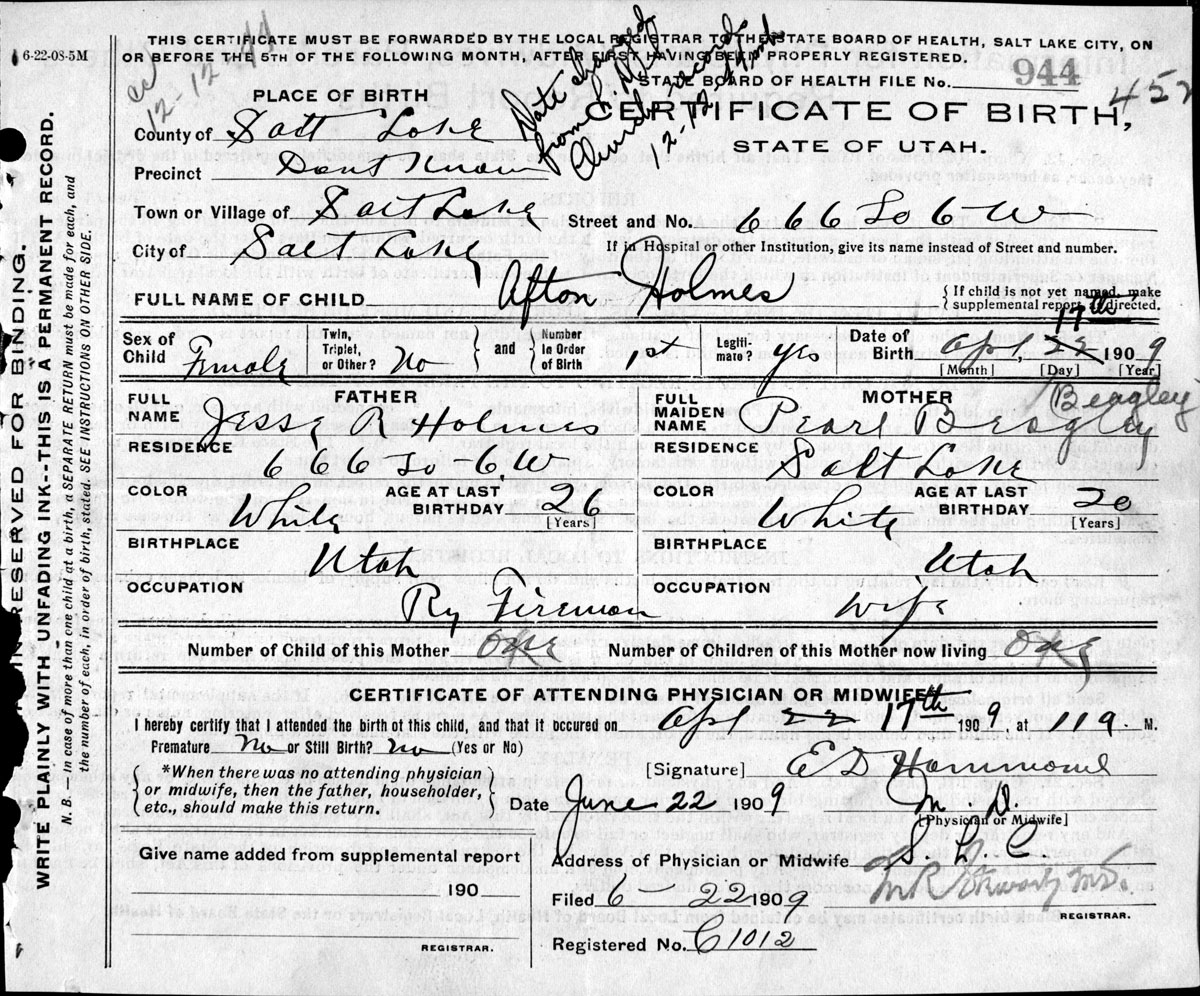 6-22-08-5M
THIS CERTIFICATE MUST BE FORWARDED BY THE LOCAL REGISTRAR TO THE STATE BOARD OF HEALTH, SALT LAKE CITY, ON
OR BEFORE THE 5TH OF THE FOLLOWING MONTH, AFTER FIRST HAVING BEEN PROPERLY REGISTERED.
STATE BOARD OF HEALTH FILE No. 944
452
12-12-44
Date changed
from
Church record
12-12-44
PLACE OF BIRTH
CERTIFICATE OF BIRTH,
STATE OF UTAH.
County of Salt Lake
Precinct Dont Know
Town or Village of Salt Lake Street and No. 666 So 6 W
City of Salt Lake If in Hospital or other Institution, give its name instead of Street and number.
FULL NAME OF CHILD Afton Holmes { If child is not yet named, make
supplemental report as directed.
17th
Sex of Child Female Twin, Triplet, or Other? No and Number In Order of Birth 1st Legiti-mate? yes Date of Birth Apl, 22 1909
[Month] [Day] [Year]
FATHER
FULL NAME Jesse R Holmes
RESIDENCE 666 So 6W
COLOR White AGE AT LAST BIRTHDAY 26
[Years]
BIRTHPLACE Utah
OCCUPATION Ry Fireman
MOTHER Beagley
FULL MAIDEN NAME Pearl Beagley
RESIDENCE Salt Lake
COLOR White AGE AT LAST BIRTHDAY 20
[Years]
BIRTHPLACE Utah
OCCUPATION Wife
Number of Child of this Mother One Number of Children of this Mother now living One
CERTIFICATE OF ATTENDING PHYSICIAN OR MIDWIFE
I hereby certify that I attended the birth of this child, and that it occured on Apl 22 17th 1909 at 11 9. M.
Premature No or Still Birth? No (Yes or No)
*When there was no attending physician
or midwife, then the father, householder,
etc., should make this return.
[Signature] E D Hammond
Date June 22 1909 M. D.
[Physician or Midwife]
Give name added from supplemental report
190
REGISTRAR.
Address of Physician or Midwife S. L. C.
Filed 6 - 22 1909 M R Stewart M.D.
REGISTRAR.
Registered No. C1012
RESERVED FOR BINDING.
WRITE PLAINLY WITH UNFADING INK--THIS IS A PERMANENT RECORD.
N. B. — in case of more than one child at a birth, a SEPARATE RETURN must be made for each, and
the number of each, in order of birth, stated. SEE INSTRUCTIONS ON OTHER SIDE.